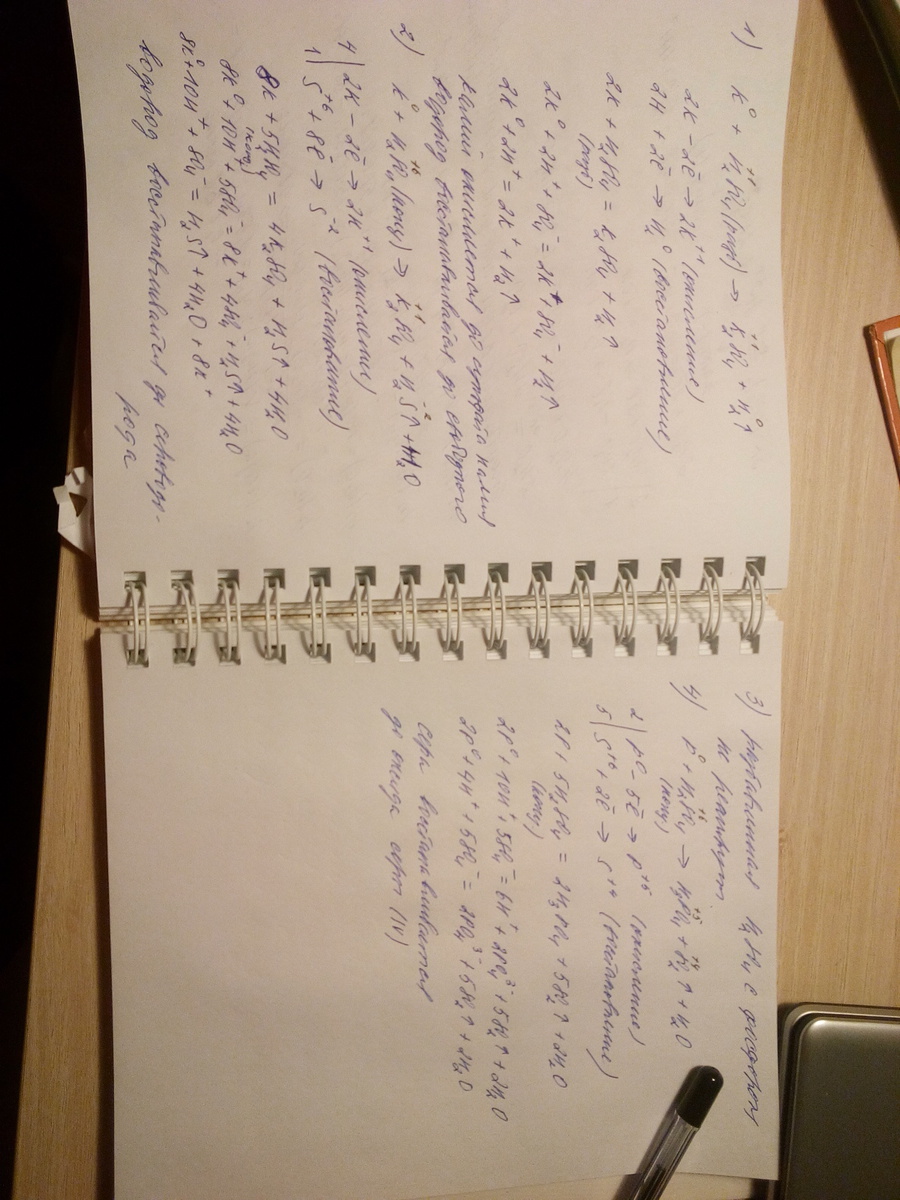 1) K⁰ + H₂⁺¹SO₄(разб) → K₂⁺¹SO₄ + H₂⁰↑
2K - 2ē → 2K⁺¹ (окисление)
2H + 2ē → H₂⁰ (восстановление)
2K + H₂SO₄ = K₂SO₄ + H₂↑
(разб)
2K⁰ + 2H⁺ + SO₄⁻ = 2K⁺ + SO₄⁻ + H₂↑
2K⁰ + 2H⁺ = 2K⁺ + H₂↑
калий окисляется до сульфата калия
водород восстанавливается до свободного
2) K⁰ + H₂S⁺⁶O₄(конц) → K₂⁺¹SO₄ + H₂S⁻²↑ + H₂O
4| 2K - 2ē → 2K⁺¹ (окисление)
1| S⁺⁶ + 8ē → S⁻² (восстановление)
8K + 5H₂SO₄ = 4K₂SO₄ + H₂S↑ + 4H₂O
(конц)
8K⁰ + 10H⁺ + 5SO₄⁻ = 8K⁺ + 4SO₄⁻ + H₂S↑ + 4H₂O
8K⁰ + 10H⁺ + SO₄⁻ = H₂S↑ + 4H₂O + 8K⁺
водород восстанавливается до сероводо-
рода
3) разбавленная H₂SO₄ с фосфором
не реагирует
4) P⁰ + H₂S⁺⁶O₄ → H₃P⁺⁵O₄ + S⁺⁴O₂↑ + H₂O
(конц)
2| P⁰ - 5ē → P⁺⁵ (окисление)
5| S⁺⁶ + 2ē → S⁺⁴ (восстановление)
2P + 5H₂SO₄ = 2H₃PO₄ + 5SO₂↑ + 2H₂O
(конц)
2P⁰ + 10H⁺ + 5SO₄⁻ = 6H⁺ + 2PO₄³⁻ + 5SO₂↑ + 2H₂O
2P⁰ + 4H⁺ + 5SO₄⁻ = 2PO₄³⁻ + 5SO₂↑ + 2H₂O
сера восстанавливается
до оксида серы (IV)